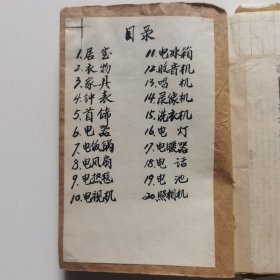 目录
1.居室
2.衣物
3.家具
4.钟表
5.首饰
6.电器
7.电饭锅
8.电风扇
9.电热毯
10.电视机
11.电冰箱
12.收音机
13.唱机
14.录像机
15.洗衣机
16.电灯
17.电暖器
18.电话
19.电池
20.照相机